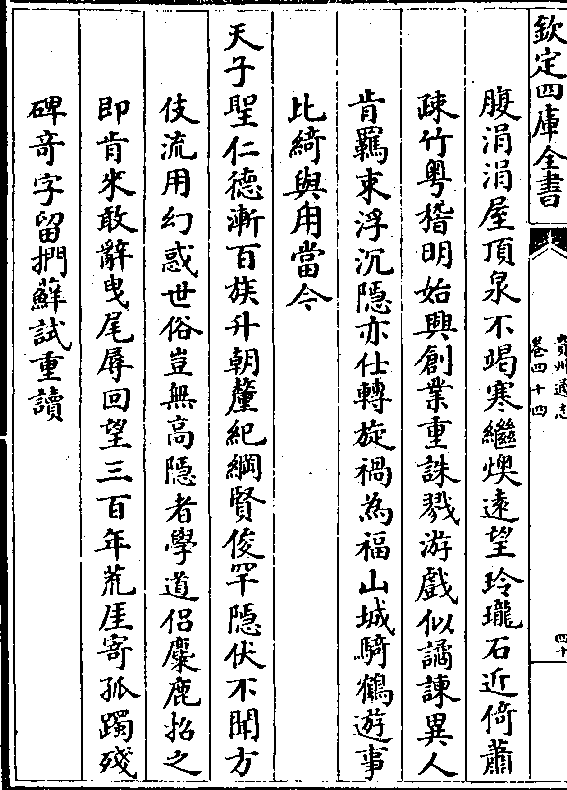 欽定四庫全書
貴州通志
卷四十四
四十
腹涓涓屋頂泉不竭寒繼燠遠望玲瓏石近倚蕭
疎竹粤稽明始興創業重誅戮游戲似譎諫異人
肯羈束浮沉隱亦仕轉旋禍為福山城騎鶴遊事
比綺與用當今
天子聖仁德漸百族升朝釐紀綱賢俊罕隱伏不聞方
伎流用幻惑世俗豈無高隱者學道侣麋鹿招之
即肯來敢辭曳尾辱回望三百年荒厓寄孤躅殘
碑奇字留捫蘚試重讀